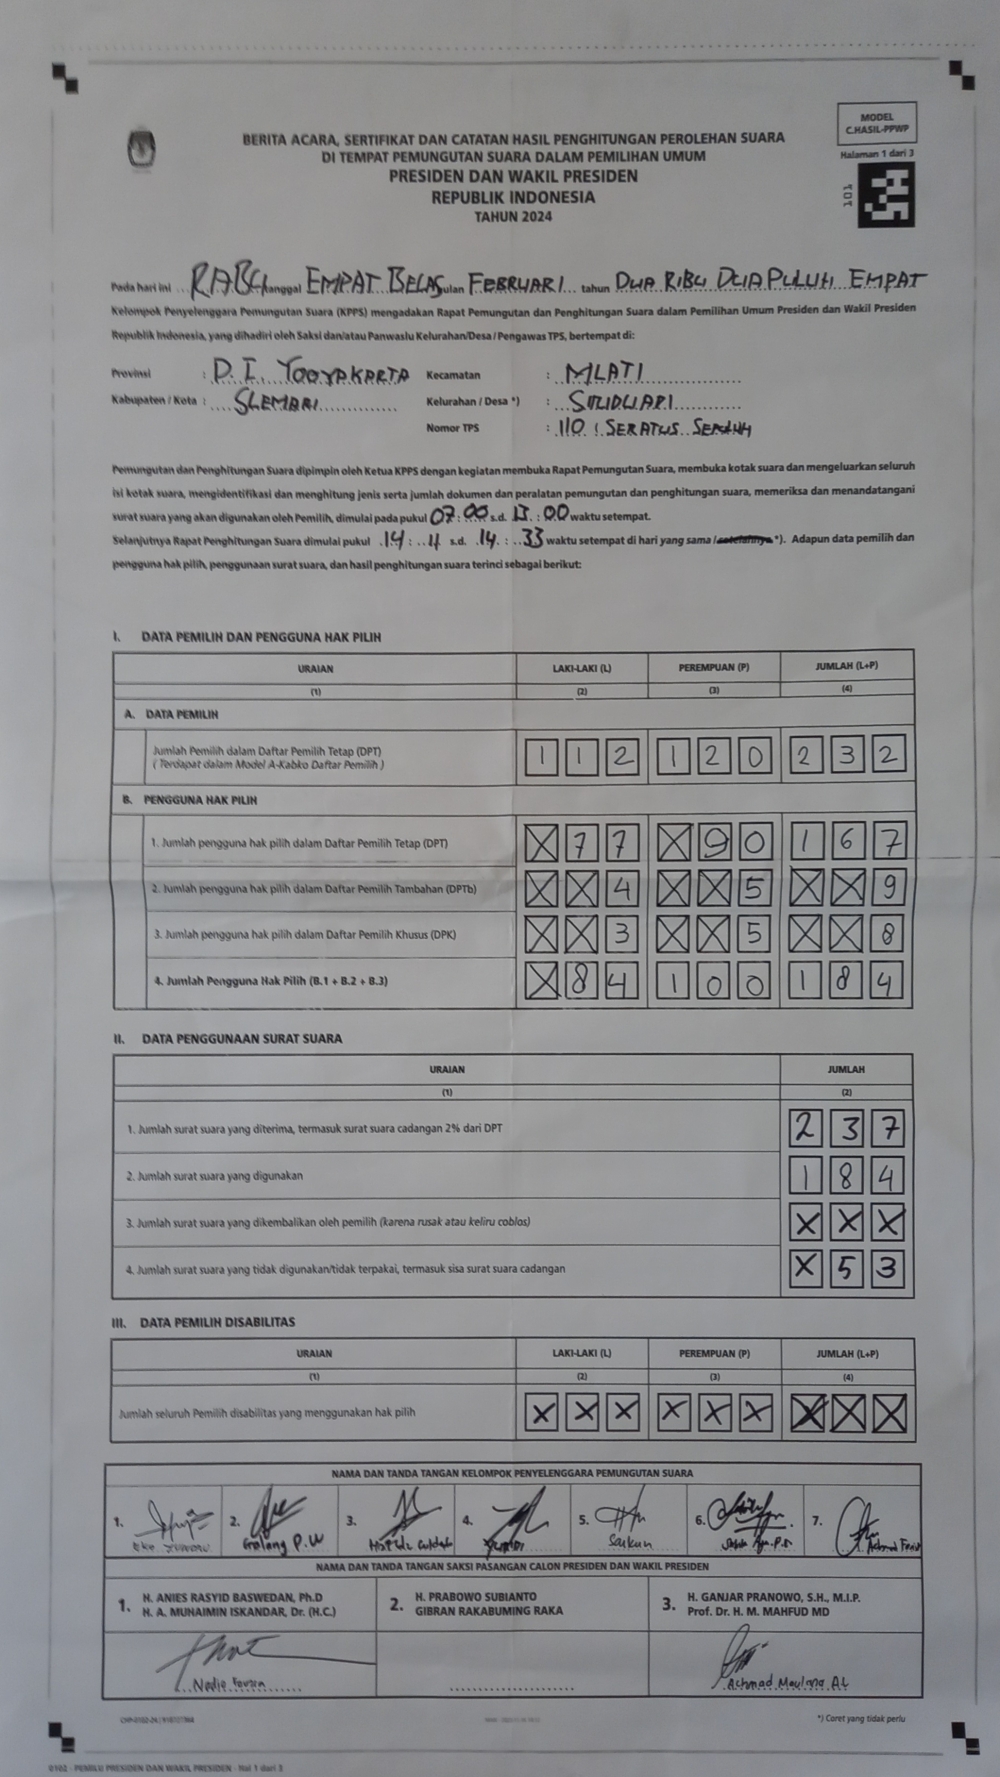 MODEL
C.HASIL-PPWP
Halaman 1 dari 3
101
BERITA ACARA, SERTIFIKAT DAN CATATAN HASIL PENGHITUNGAN PEROLEHAN SUARA
DI TEMPAT PEMUNGUTAN SUARA DALAM PEMILIHAN UMUM
PRESIDEN DAN WAKIL PRESIDEN
REPUBLIK INDONESIA
TAHUN 2024
Pada hari ini RABU tanggal EMPAT BELAS bulan FEBRUARI tahun DUA RIBU DUA PULUH EMPAT
Kelompok Penyelenggara Pemungutan Suara (KPPS) mengadakan Rapat Pemungutan dan Penghitungan Suara dalam Pemilihan Umum Presiden dan Wakil Presiden
Republik Indonesia, yang dihadiri oleh Saksi dan/atau Panwaslu Kelurahan/Desa / Pengawas TPS, bertempat di:
Provinsi : D.I. YOGYAKARTA Kecamatan : MLATI
Kabupaten / Kota : SLEMAN Kelurahan / Desa *) : SINDUADI
Nomor TPS : 110 (SERATUS SEPULUH
Pemungutan dan Penghitungan Suara dipimpin oleh Ketua KPPS dengan kegiatan membuka Rapat Pemungutan Suara, membuka kotak suara dan mengeluarkan seluruh
isi kotak suara, mengidentifikasi dan menghitung jenis serta jumlah dokumen dan peralatan pemungutan dan penghitungan suara, memeriksa dan menandatangani
surat suara yang akan digunakan oleh Pemilih, dimulai pada pukul 07:00 s.d. 13:00 waktu setempat.
Selanjutnya Rapat Penghitungan Suara dimulai pukul 14: s.d. 14:33 waktu setempat di hari yang sama / setelahnya *). Adapun data pemilih dan
pengguna hak pilih, penggunaan surat suara, dan hasil penghitungan suara terinci sebagai berikut:
I. DATA PEMILIH DAN PENGGUNA HAK PILIH
URAIAN LAKI-LAKI (L) PEREMPUAN (P) JUMLAH (L+P)
(1) (2) (3) (4)
A. DATA PEMILIH
Jumlah Pemilih dalam Daftar Pemilih Tetap (DPT) 1 1 2 1 2 0 2 3 2
( Terdapat dalam Model A-Kabko Daftar Pemilih )
B. PENGGUNA HAK PILIH
1. Jumlah pengguna hak pilih dalam Daftar Pemilih Tetap (DPT) X 7 7 X 9 0 1 6 7
2. Jumlah pengguna hak pilih dalam Daftar Pemilih Tambahan (DPTb) X X 4 X X 5 X X 9
3. Jumlah pengguna hak pilih dalam Daftar Pemilih Khusus (DPK) X X 3 X X 5 X X 8
4. Jumlah Pengguna Hak Pilih (B.1 + B.2 + B.3) X 8 4 1 0 0 1 8 4
II. DATA PENGGUNAAN SURAT SUARA
URAIAN JUMLAH
(1) (2)
1. Jumlah surat suara yang diterima, termasuk surat suara cadangan 2% dari DPT 2 3 7
2. Jumlah surat suara yang digunakan 1 8 4
3. Jumlah surat suara yang dikembalikan oleh pemilih (karena rusak atau keliru coblos) X X X
4. Jumlah surat suara yang tidak digunakan/tidak terpakai, termasuk sisa surat suara cadangan X 5 3
III. DATA PEMILIH DISABILITAS
URAIAN LAKI-LAKI (L) PEREMPUAN (P) JUMLAH (L+P)
(1) (2) (3) (4)
Jumlah seluruh Pemilih disabilitas yang menggunakan hak pilih X X X X X X X X X
NAMA DAN TANDA TANGAN KELOMPOK PENYELENGGARA PEMUNGUTAN SUARA
1. Eko 2. Galang P.W 3. 4. 5. 6. 7. Achmad
NAMA DAN TANDA TANGAN SAKSI PASANGAN CALON PRESIDEN DAN WAKIL PRESIDEN
1. H. ANIES RASYID BASWEDAN, Ph.D
H. A. MUHAIMIN ISKANDAR, Dr. (H.C.)
2. H. PRABOWO SUBIANTO
GIBRAN RAKABUMING RAKA
3. H. GANJAR PRANOWO, S.H., M.I.P.
Prof. Dr. H. M. MAHFUD MD
Achmad Maulana AL
*) Coret yang tidak perlu
0102 - PEMILU PRESIDEN DAN WAKIL PRESIDEN - Hal 1 dari 3